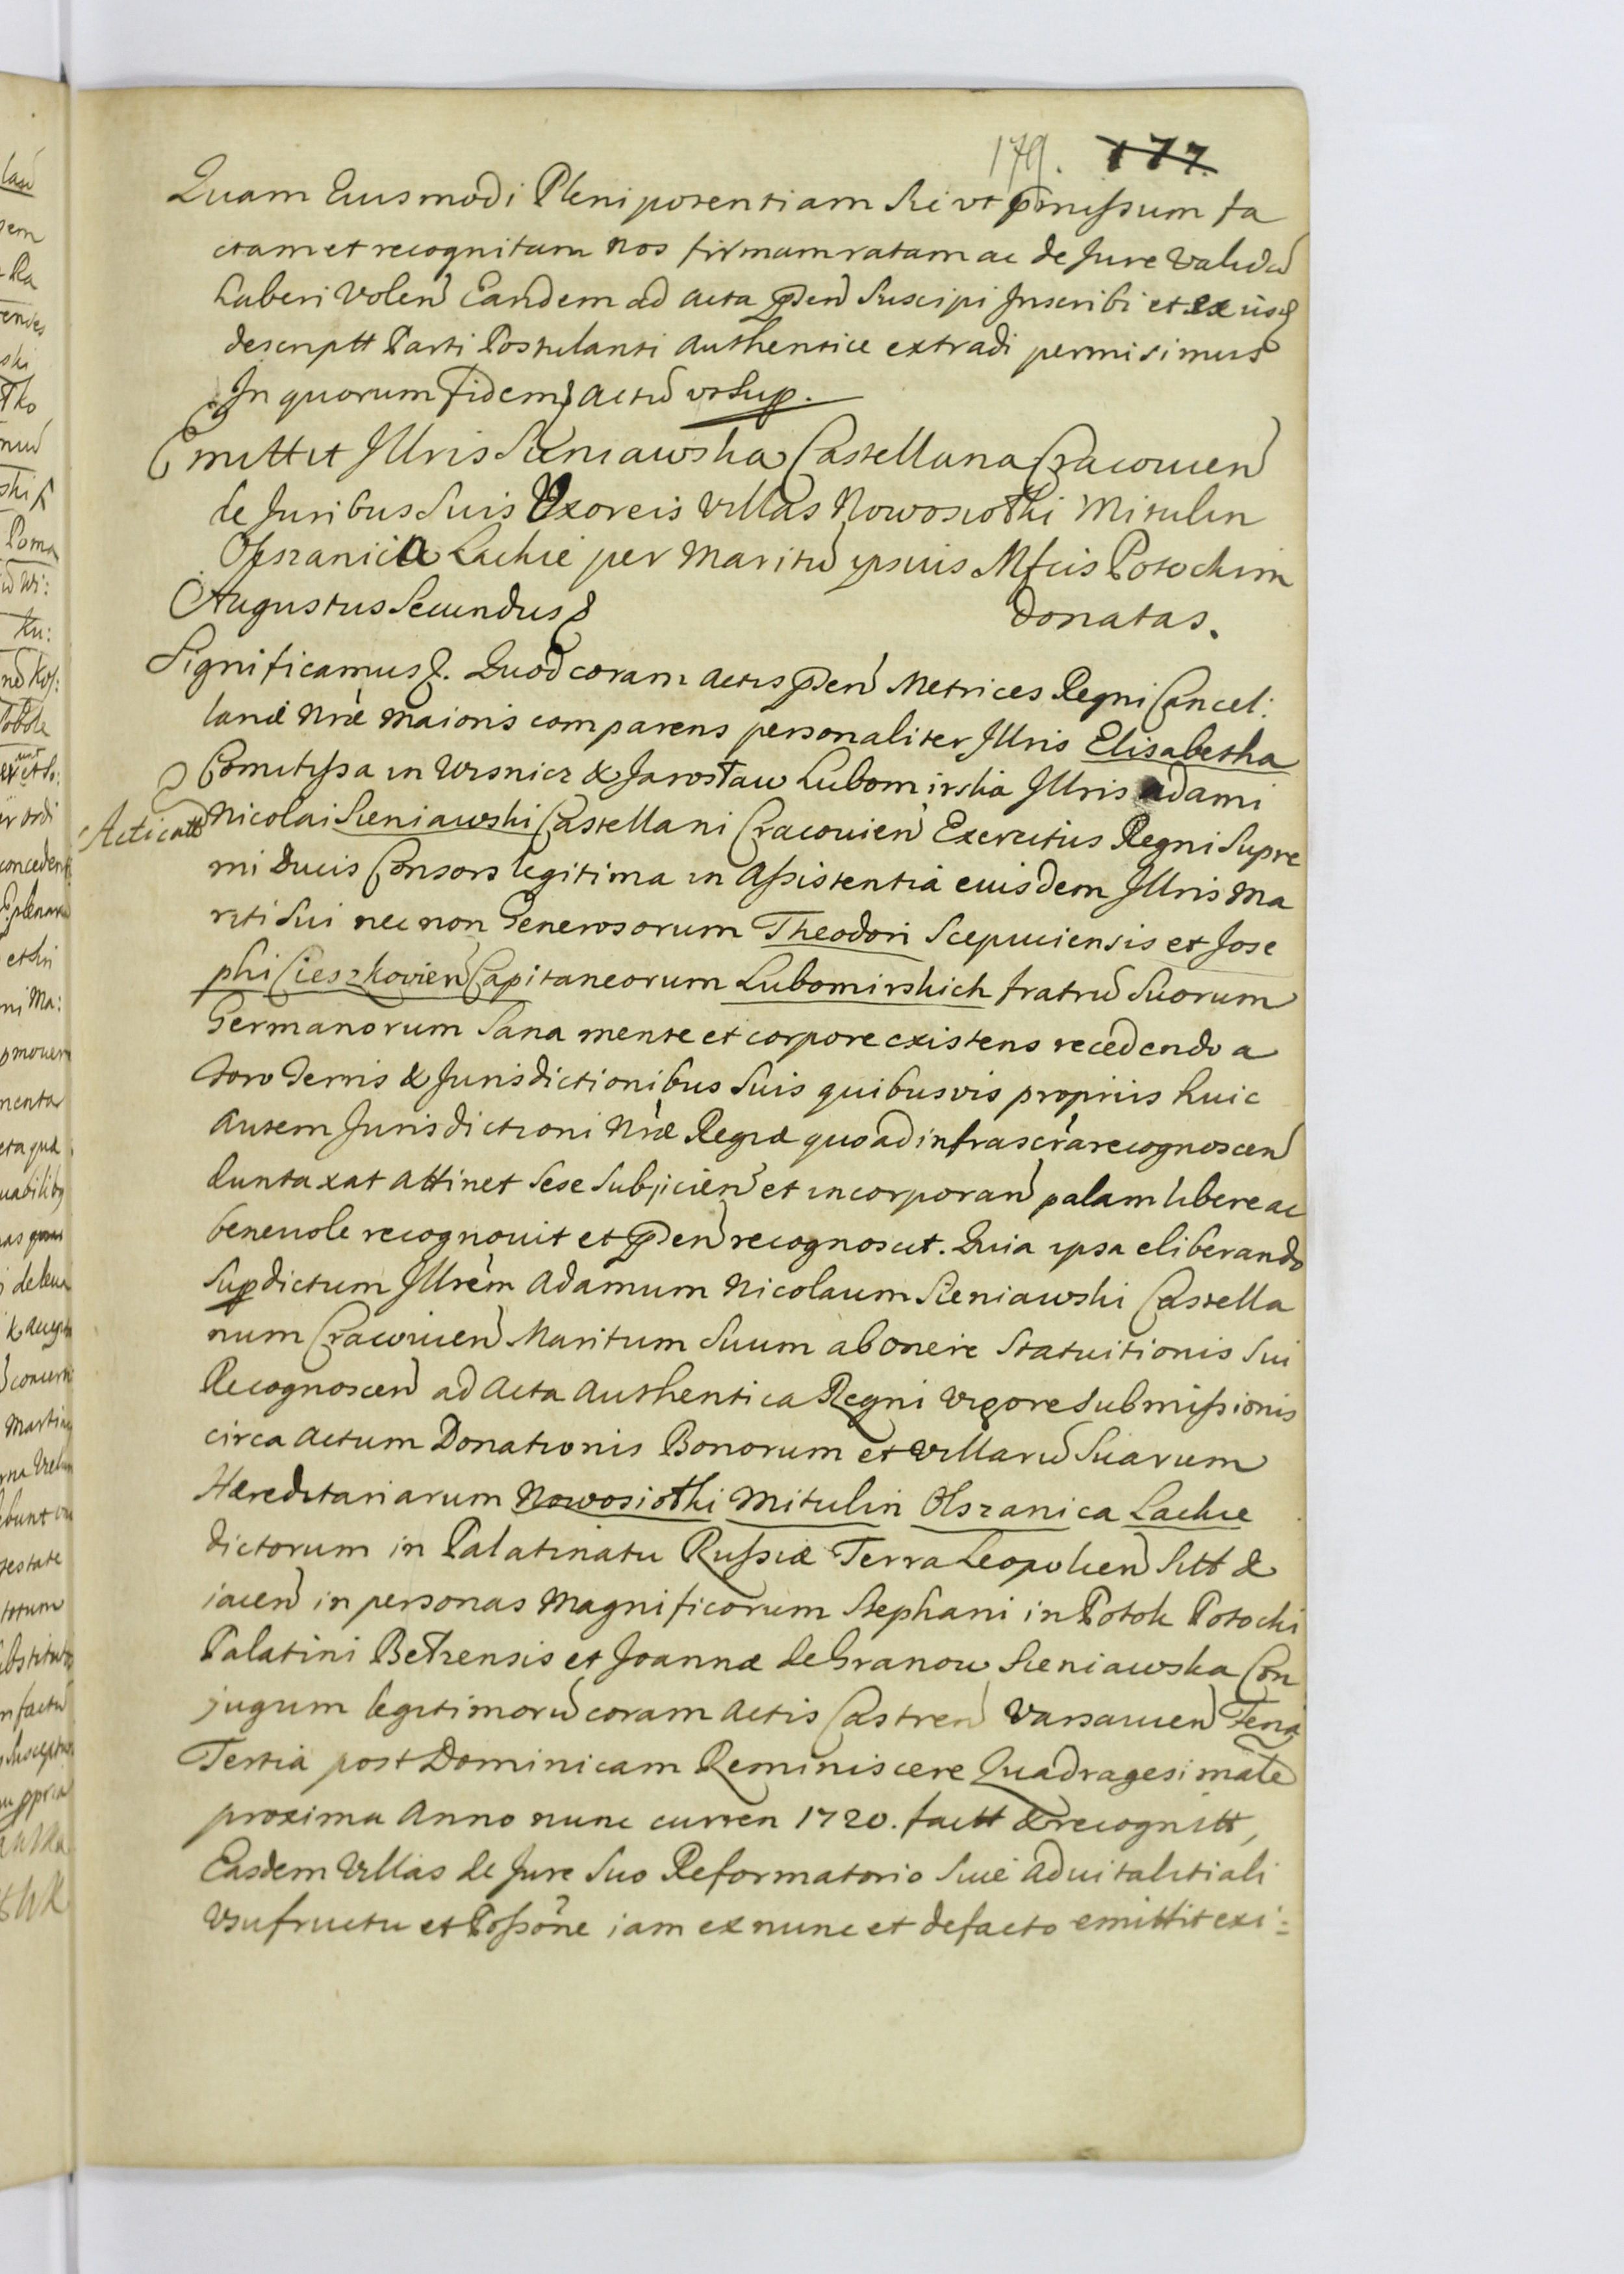 179. 177.
Quam Eiusmodi Plenipotentiam Sic ut pmissum fa
ctam et recognitam Nos firmam ratam ac de Jure Validã
haberi Volen Eandem ad acta pñ Suscipi Inscribi et ex iisq
descriptt Parti Postulanti Authentice extradi permisimus
In quorum fidem & actũ ut Sup.
Emittit Illris Sieniawska Castellana Cracouien
de Juribus Suis Uxoreis Villas Nowosiołki Mitulin
Olszanica Lackie per Maritũ ipsius Mfcis Potockim
Augustus Secundus &
Donatas.
Significamus &. Quod coram Actis pñ Metrices Regni Cancel:
lariæ Nræ Maioris comparens personaliter Illris Elisabetha
Comitissa in Wisnicz & Jarosław Lubomirska Illris Adami
Acticatt
Nicolai Sieniawski Castellani Cracouien Exercitus Regni Supre
mi Ducis Consors legitima in Assistentia eiusdem Illris Ma
riti Sui nec non Generosorum Theodori Scepuciensis et Jose
phi Cieszkovien Capitaneorum Lubomirskich fratrũ Suorum
Germanorum Sana mente et corpore existens recedendo a
foro Terris & Jurisdictionibus Suis quibusvis propriis huic
autem Jurisdictioni Nræ Regiæ quoad infrascra recognoscen
duntaxat attinet Sese Subjicien et incorporan palam libere ac
beneuole recognouit et pñ recognoscit. Quia ipsa eliberando
Supdictum Illrem Adamum Nicolaum Sieniawski Castella
num Cracouien Maritum Suum ab onere Statuitionis Sui
Recognoscen ad Acta Authentica Regni Vigore Submissionis
circa Actum Donationis Bonorum et Villarũ Suarum
Hæreditariarum Nowosiołki Mitulin Olszanica Lackie
dictorum in Palatinatu Russiæ Terra Leopolien Sitt &
iacen in personas Magnificorum Stephani in Potok Potocki
Palatini Bełzensis et Joannæ de Granow Sieniawska Con
jugum legitimorũ coram Actis Castren Varsauien Feria
Tertia post Dominicam Reminiscere Quadragesimale
proxima Anno nunc curren 1720. factt & recognitt,
Easdem Villas de Jure Suo Reformatorio Siue Aduitalitiali
Usufructu et Possõne iam ex nunc et defacto emittit exi=